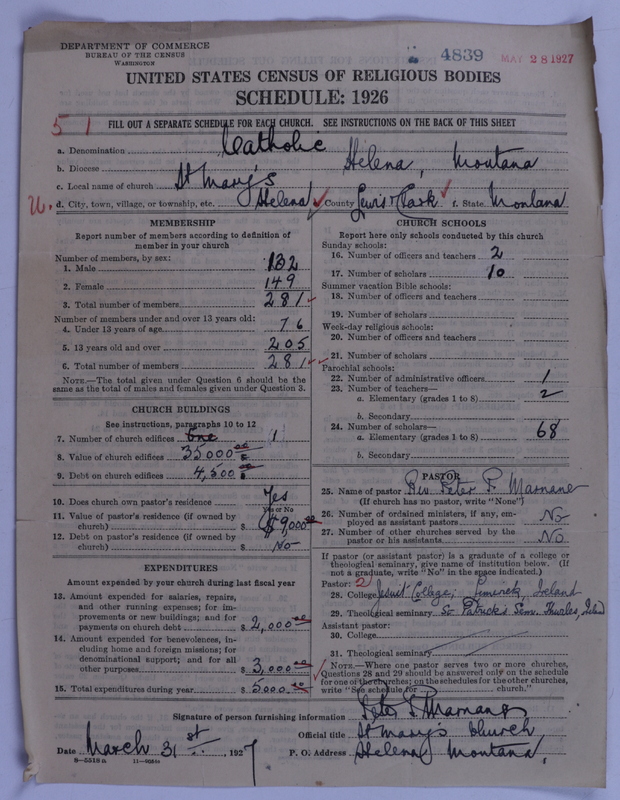 DEPARTMENT OF COMMERCE
BUREAU OF THE CENSUS
WASHINGTON
4839
MAY 28 1927
UNITED STATES CENSUS OF RELIGIOUS BODIES
SCHEDULE: 1926
51
FILL OUT A SEPARATE SCHEDULE FOR EACH CHURCH. SEE INSTRUCTIONS ON THE BACK OF THIS SHEET
a. Denomination Catholic
b. Diocese Helena, Montana
c. Local name of church St Mary's
U. d. City, town, village, or township, etc. Helena County Lewis & Clark f. State Montana
MEMBERSHIP
Report number of members according to definition of
member in your church
Number of members, by sex:
1. Male 132
2. Female 149
3. Total number of members 281
Number of members under and over 13 years old:
4. Under 13 years of age 76
5. 13 years old and over 205
6. Total number of members 281
NOTE.—The total given under Question 6 should be the
same as the total of males and females given under Question 3.
CHURCH BUILDINGS
See instructions, paragraphs 10 to 12
7. Number of church edifices One 1
8. Value of church edifices $ 35000.00
9. Debt on church edifices $ 4,500.00
10. Does church own pastor's residence Yes
Yes or No
11. Value of pastor's residence (if owned by
church) $ $9,000.00
12. Debt on pastor's residence (if owned by
church) $ No
EXPENDITURES
Amount expended by your church during last fiscal year
13. Amount expended for salaries, repairs,
and other running expenses; for im-
provements or new buildings; and for
payments on church debt $ 2,000.00
14. Amount expended for benevolences, in-
cluding home and foreign missions; for
denominational support; and for all
other purposes $ 3,000.00
15. Total expenditures during year $ 5000.00
CHURCH SCHOOLS
Report here only schools conducted by this church
Sunday schools:
16. Number of officers and teachers 2
17. Number of scholars 10
Summer vacation Bible schools:
18. Number of officers and teachers
19. Number of scholars
Week-day religious schools:
20. Number of officers and teachers
21. Number of scholars
Parochial schools:
22. Number of administrative officers 1
23. Number of teachers—
a. Elementary (grades 1 to 8) 2
b. Secondary
24. Number of scholars—
a. Elementary (grades 1 to 8) 68
b. Secondary
PASTOR
25. Name of pastor Rev Peter F. Marnane
(If church has no pastor, write "None")
26. Number of ordained ministers, if any, em-
ployed as assistant pastors No
27. Number of other churches served by the
pastor or his assistants No
If pastor (or assistant pastor) is a graduate of a college or
theological seminary, give name of institution below. (If
not a graduate, write "No" in the space indicated.)
Pastor: 2
28. College Jesuit College, Limerick, Ireland
29. Theological seminary St Patrick's Sem. Thurles, Ireland
Assistant pastor:
30. College
31. Theological seminary
NOTE.—Where one pastor serves two or more churches,
Questions 28 and 29 should be answered only on the schedule
for one of the churches; on the schedules for the other churches,
write "See schedule for church."
Signature of person furnishing information Peter F. Marnane
Official title St Mary's Church
Date March 31st, 1927 P. O. Address Helena Montana
8—5519 a